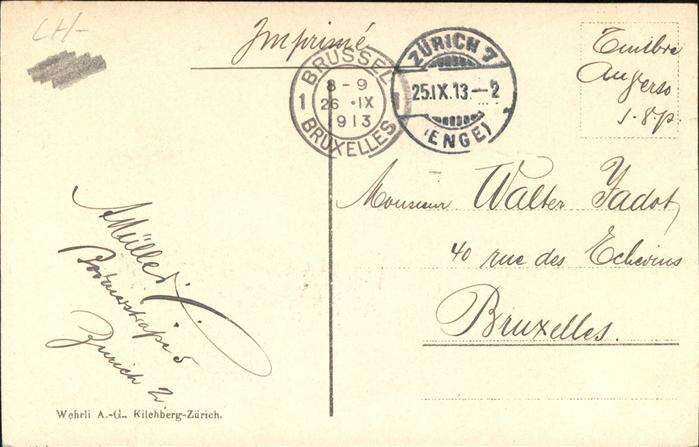 CH-
Imprimé
BRUSSEL
1 8-9 1
26 · IX
1913
BRUXELLES
ZÜRICH 7
25.IX.13.-2
(ENGE)
Timbre
au verso
s.v.p.
Monsieur Walter Jadot,
40 rue des Echevins
Bruxelles.
A Müller
Bodmerstraße 5
Zürich 2
Wehrli A.-G., Kilchberg-Zürich.